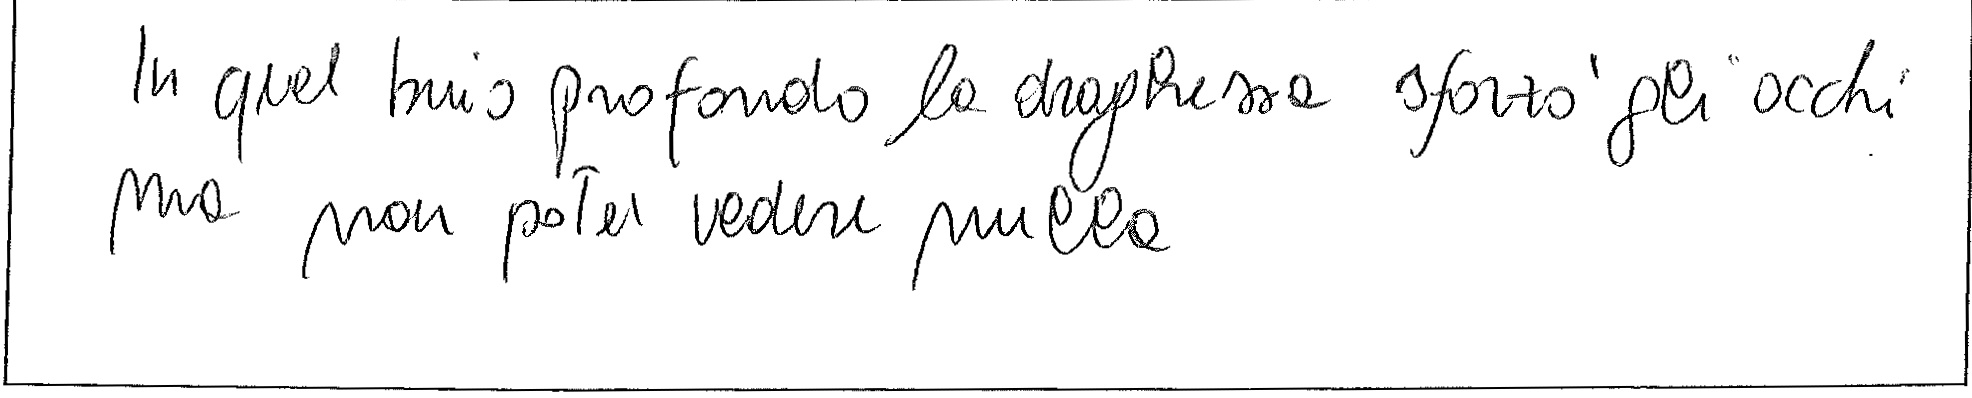 In quel buio profondo la draghessa sforzò gli occhi
ma non potei vedere nulla